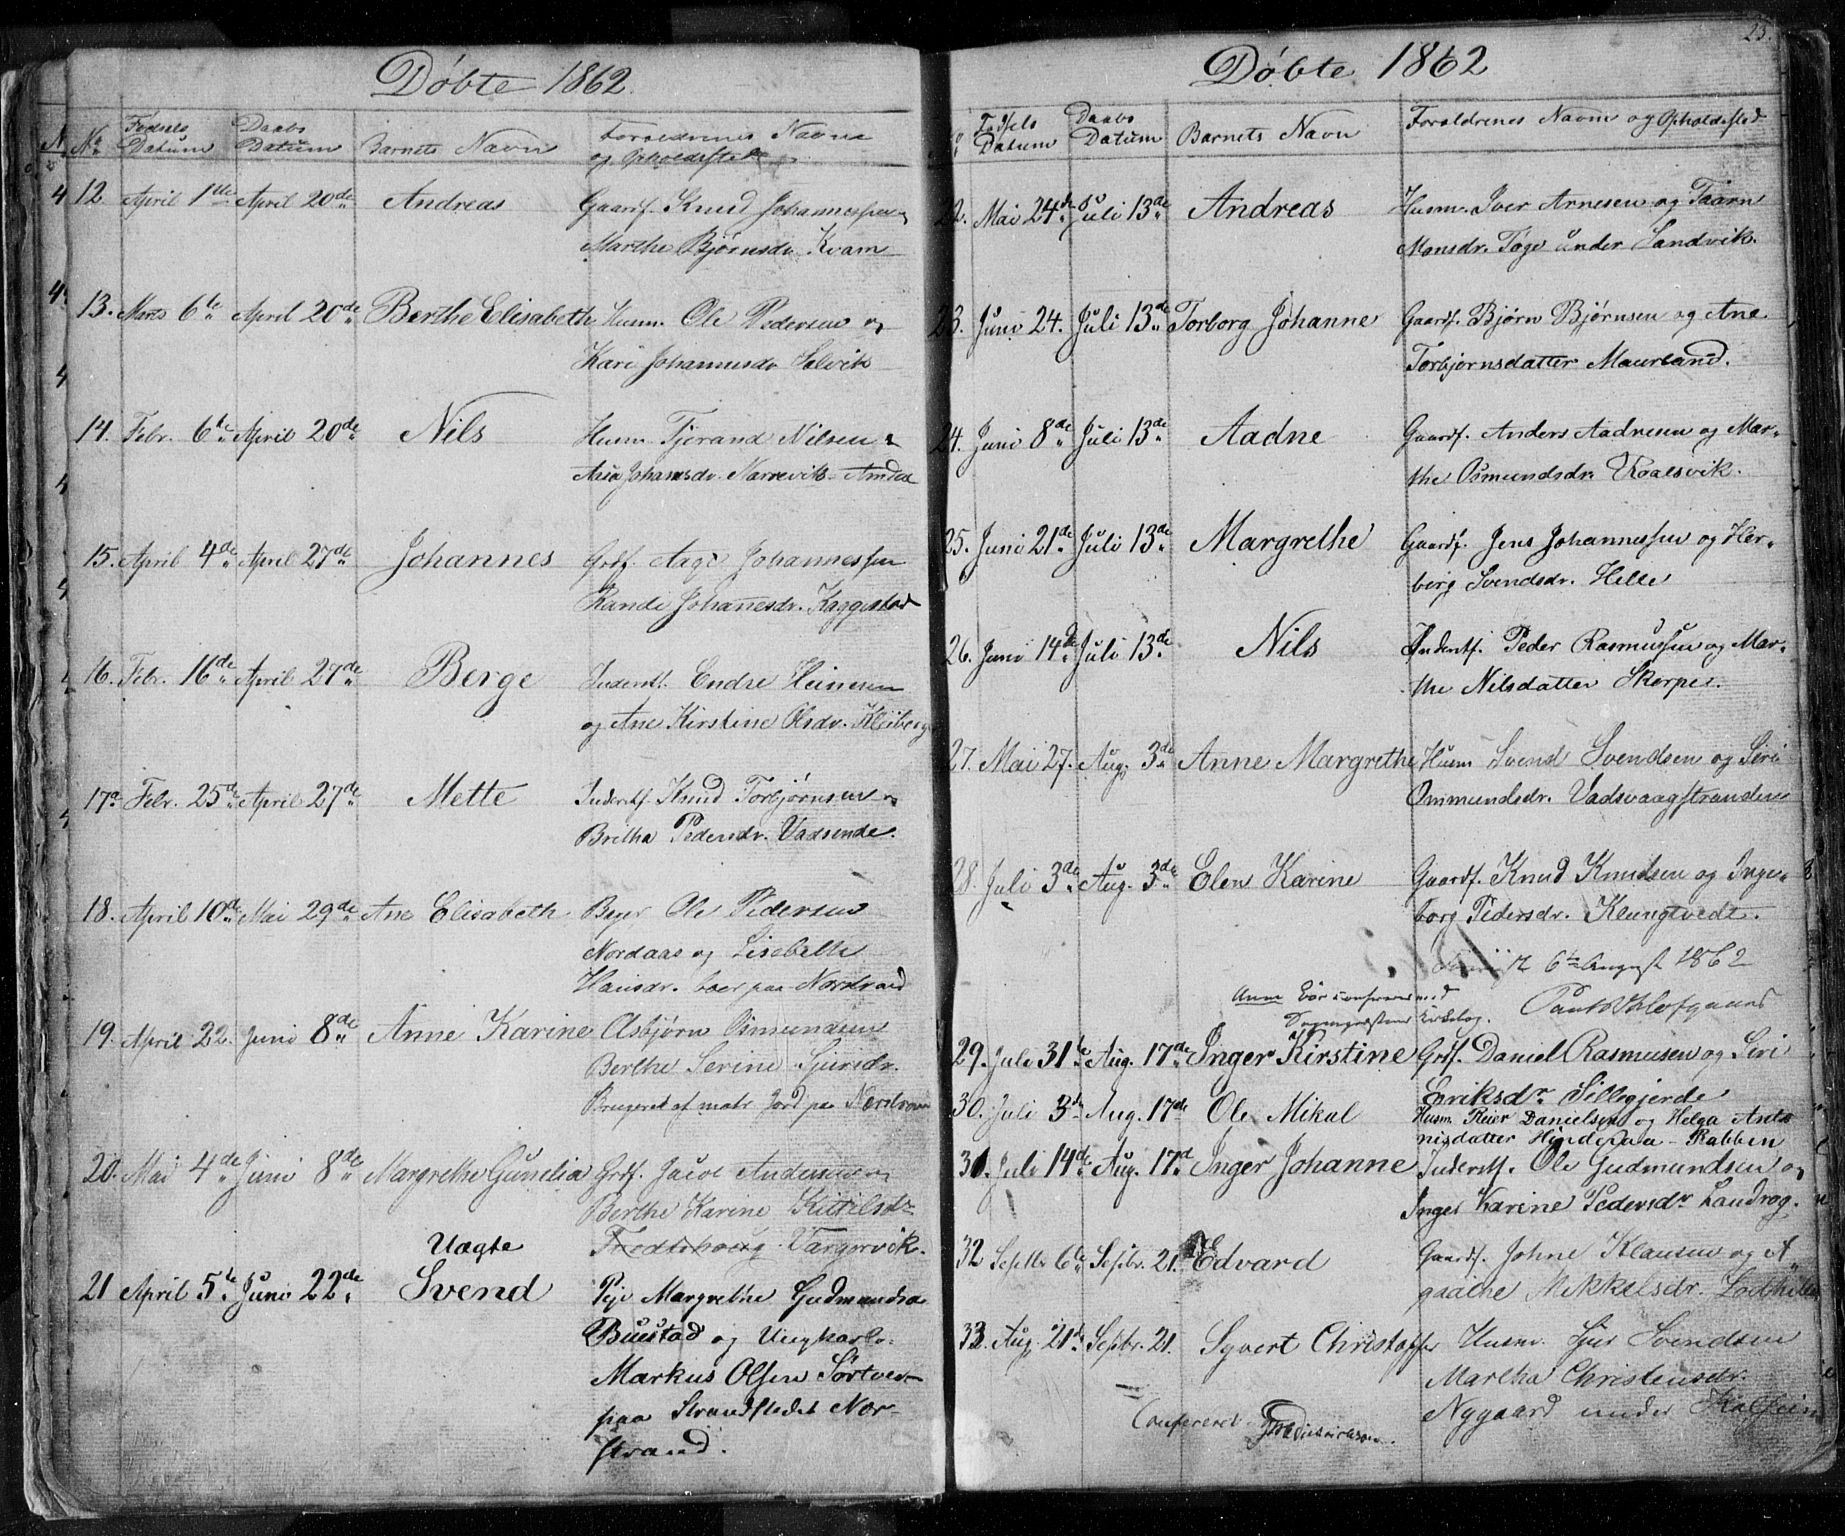 Døbte 1862.
No Fødsels Datum Daabs Datum Barnets Navn Forældrenes Navne og Opholdssted
12 April 1de April 20de Andreas Gaardf. Knud Johannessen og
Marthe Bjørnsdr. Kvam
13. Marts 6te April 20de Berthe Elisabeth Husm. Ole Pedersen og
Kari Johannesdr Solvik
14. Febr. 6te April 20de Nils Husm. Tjerand Nilsen &
Johansdr. Narrevik
15. April 4de April 27de Johannes Grdf. Aage Johannessen
Randi Johanesdr. Kaggestad
16. Febr. 16de April 27de Berge Inderstf. Endre Heinesen
og Ane Kirstine Olsdr. Kleiberg
17. Febr. 25de April 27de Mette Inderstf. Knud Torbjørnsen og
Britha Pedersdr. Vadsende.
18. April 10de Mai 29de Ane Elisabeth Ole Pedersen
Nordaas og Lisebeth
Hansdr. boer paa Nordstrand
19. April 22. Juni 8de Anne Karine Asbjørn Osmundsen
Berthe Serine Sjursdr.
Brugeret af matr Jord paa Nordstrand
20. Mai 4de Juni 8de Margrethe Gunelia Grdf. Jacob Andersen og
Berthe Karine Kittilsdr
Vargervik.
Uægte
21 April 5te Juni 22de Svend Pige Margrethe Gudmundsd.
Buestad og Ungkarl
Markus Olsen Sørtvedt
paa Strandstedet Nor-
strand.
25.
Døbte 1862
Fødsels Datum Daabs Datum Barnets Navn Forældrenes Navne og Opholdssted
22. Mai 24de Juli 13de Andreas Husm. Iver Arnesen og Taarn
Monsdr. Tøge under Sandvik.
23. Juni 24. Juli 13de Torborg Johanne Gaardf. Bjørn Bjørnsen og Ane
Torbjørnsdatter Maurland.
24. Juni 8de Juli 13de Aadne Gaardf. Anders Aadnesen og Mar-
the Osmundsdr. Roalsvik.
25. Juni 21de Juli 13de Margrethe Gaardf. Jens Johannessen og Her-
borg Svendsdr. Helle
26. Juni 14de Juli 13de Nils Inderstf. Peder Rasmussen og Mar-
the Nilsdatter Skorpe.
27. Mai 27. Aug. 3de Anne Margrethe Husm Svend Svendsen og Siri
Ommundsdr. Vadsvaagstranden
28. Juli 3de Aug. 3de Elen Karine Gaardf. Knud Knudsen og Inge-
borg Pedersdr. Klungtvedt.
6te August 1862
29. Juli 31te Aug. 17de Inger Kirstine Grdf. Daniel Rasmusen og Siri
Eriksdr Silligjerde
30. Juli 3de Aug. 17de Ole Mikal Husm. Reier Danielsen og Helga Anto
nisdatter Hinderaa - Rabben
31. Juli 14de Aug. 17de Inger Johanne Inderstf. Ole Gudmundsen og
Inger Karine Pedersdr Landrog.
32 Septbr 6te Septbr. 21. Edvard Gaardf. Johne Klausen og A
gaathe Mikkelsdr.
33. Aug. 21de Septbr. 21. Syvert Christoffer Husm. Sjur Svendsen
Martha Christensdr.
Nygaard under
Confereret